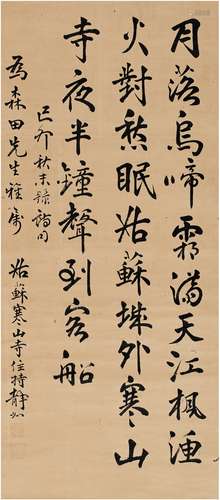 月落烏啼霜滿天江楓漁
火對愁眠姑蘇城外寒山
寺夜半鐘聲到客船
己卯秋末錄詩句
為森田先生雅屬
姑蘇寒山寺住持靜如